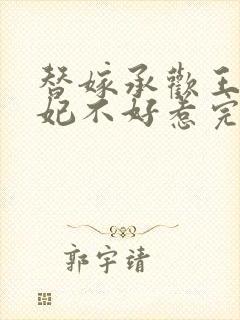 替嫁承歡王
妃不好惹完
郭宇靖